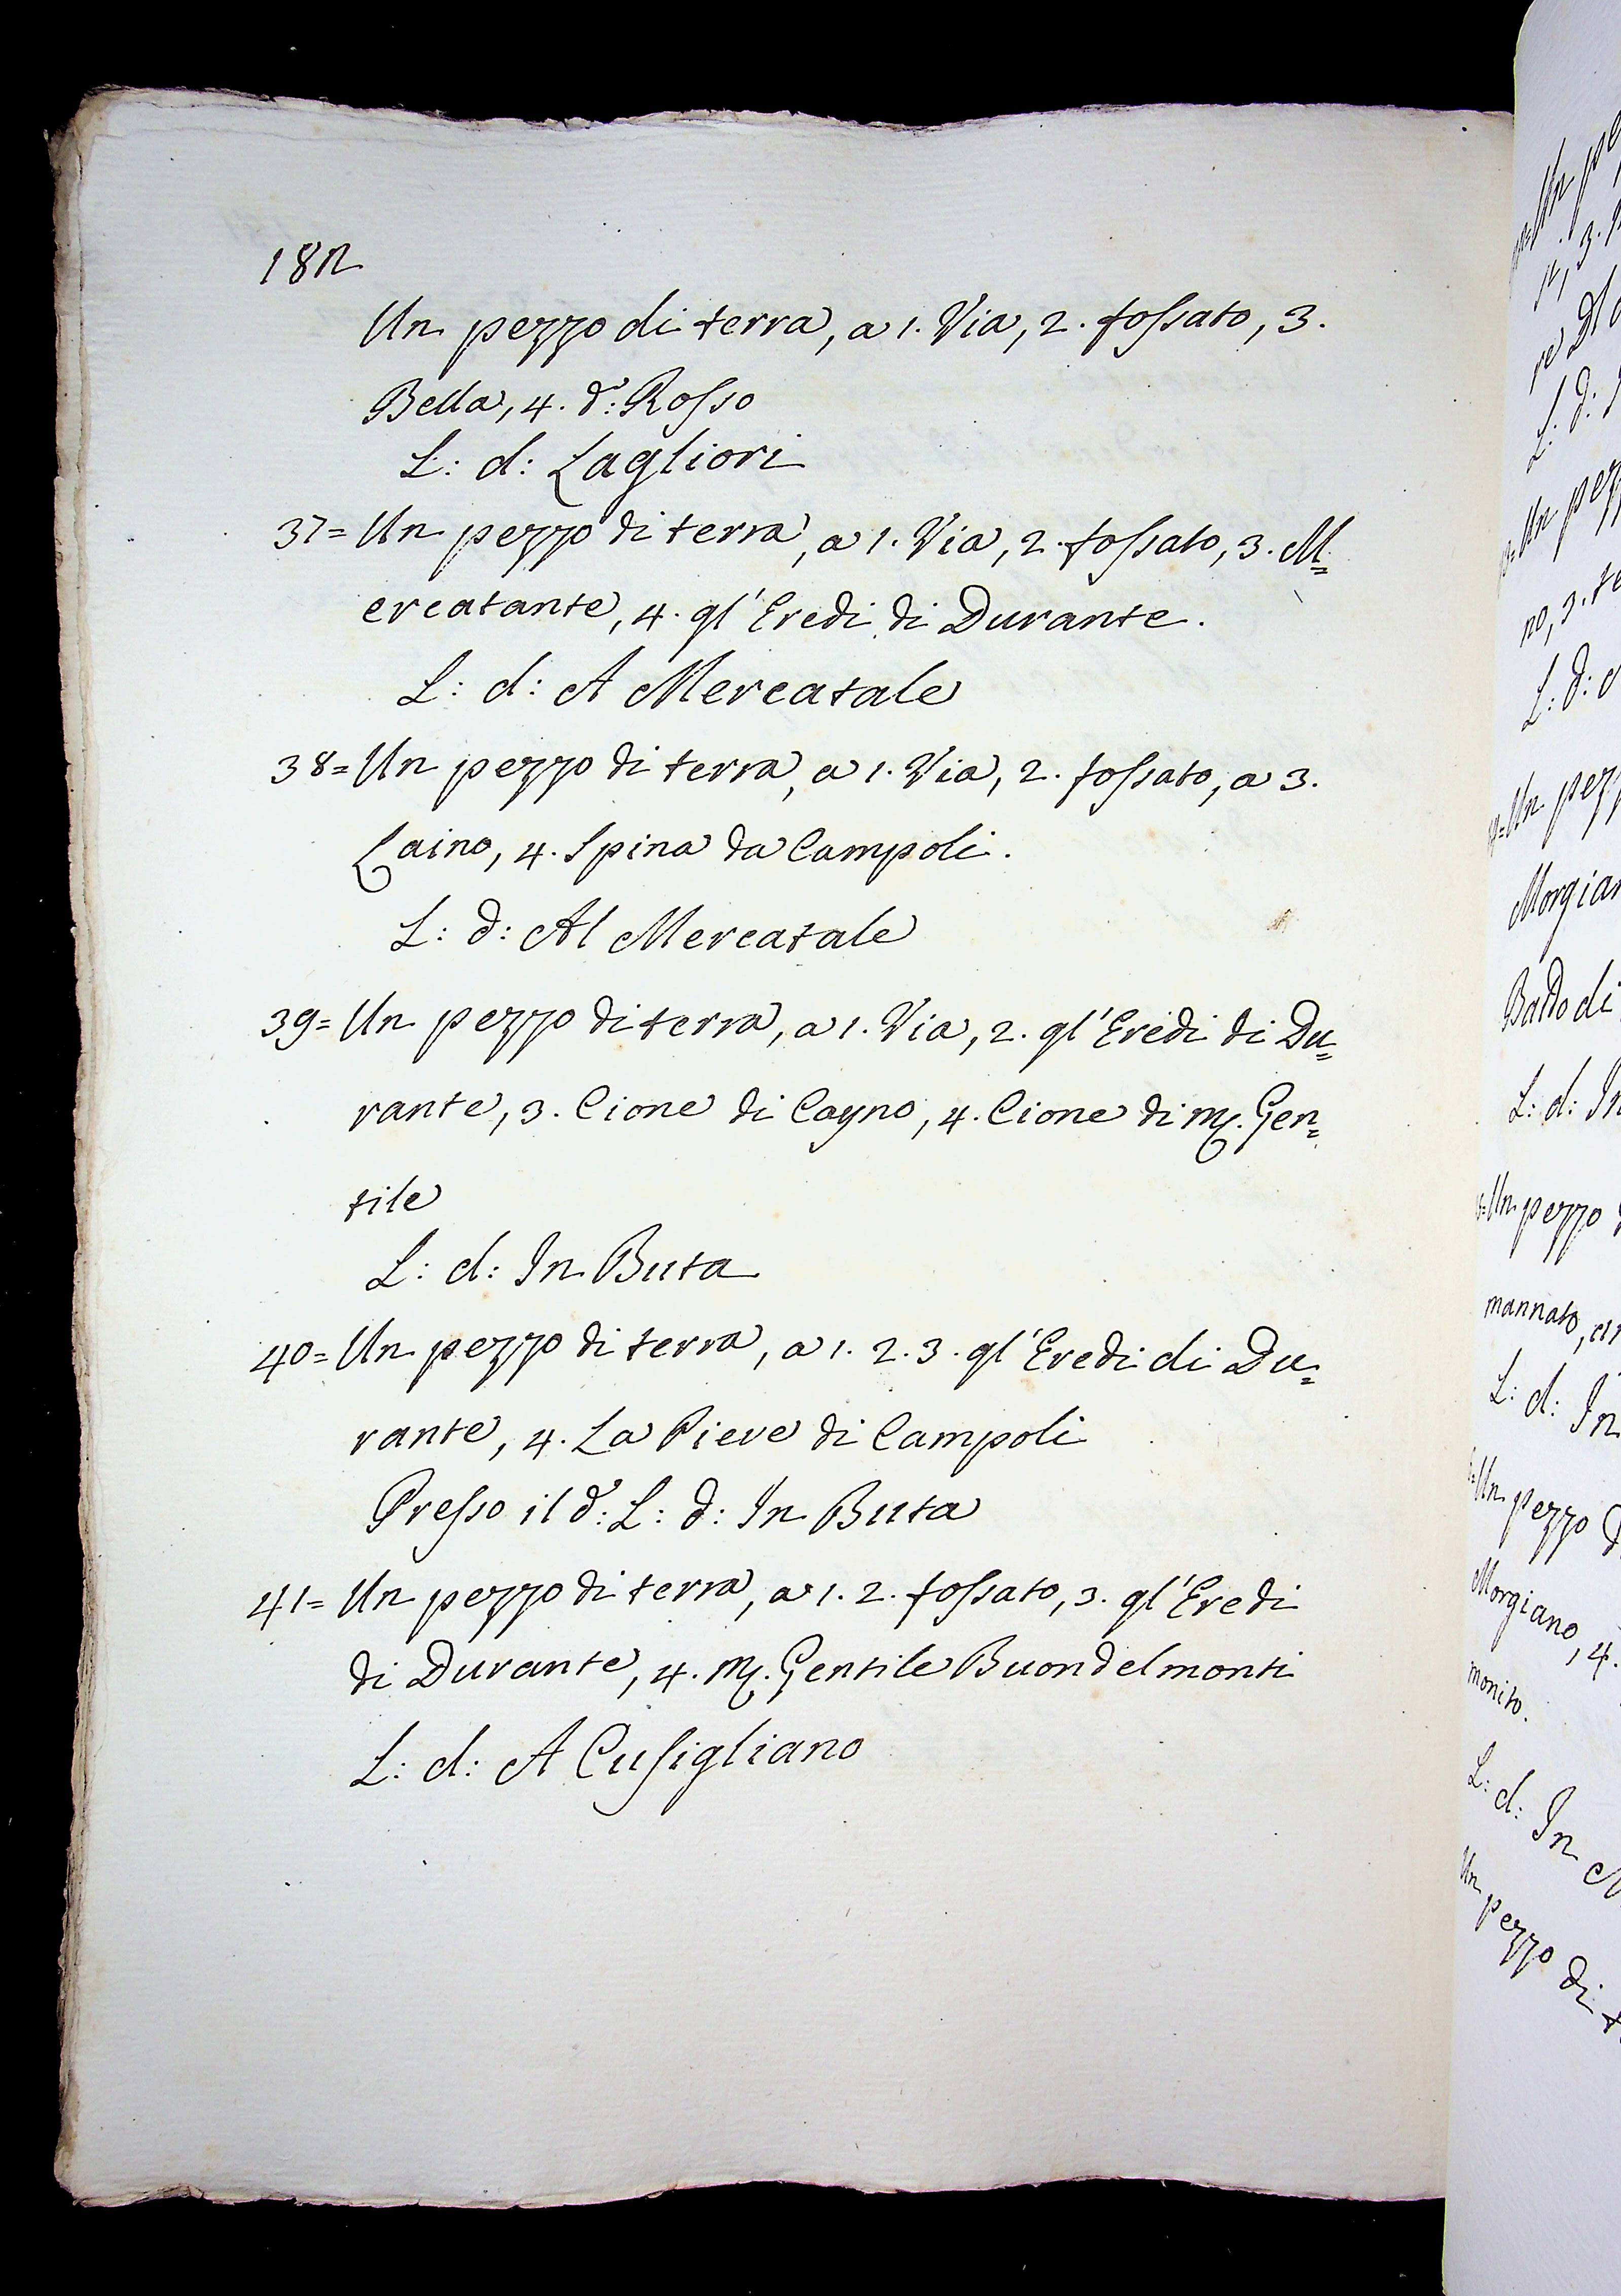 182
Un pezzo di terra, a 1. Via, 2. fossato, 3.
Bella, 4. d.º: Rosso
L: d: Lagliori
37= Un pezzo di terra, a 1. Via, 2. fossato, 3. M=
ercatante, 4. gl'Eredi di Durante.
L: d: A Mercatale
38= Un pezzo di terra, a 1. Via, 2. fossato, a 3.
Laino, 4. Spina da Campoli.
L: d: Al Mercatale
39= Un pezzo di terra, a 1. Via, 2. gl'Eredi di Du=
rante, 3. Cione di Cagno, 4. Cione di M. Gen=
tile
L: d: In Buta
40= Un pezzo di terra, a 1. 2. 3. gl'Eredi di Du=
rante, 4. La Pieve di Campoli
Presso il d.º: L: d: In Buta
41= Un pezzo di terra, a 1. 2. fossato, 3. gl'Eredi
di Durante, 4. M. Gentile Buondelmonti
L: d: A Cusigliano
Un pe
3.
L: d:
Un pez
no, 3. te
L: d:
Un pez
Morgian
Baldo di
L: d: In
Un pezzo
mannato,
L: d: In
Un pezzo d
Morgiano, 4.
monito.
L: d: In M
Un pezzo di t